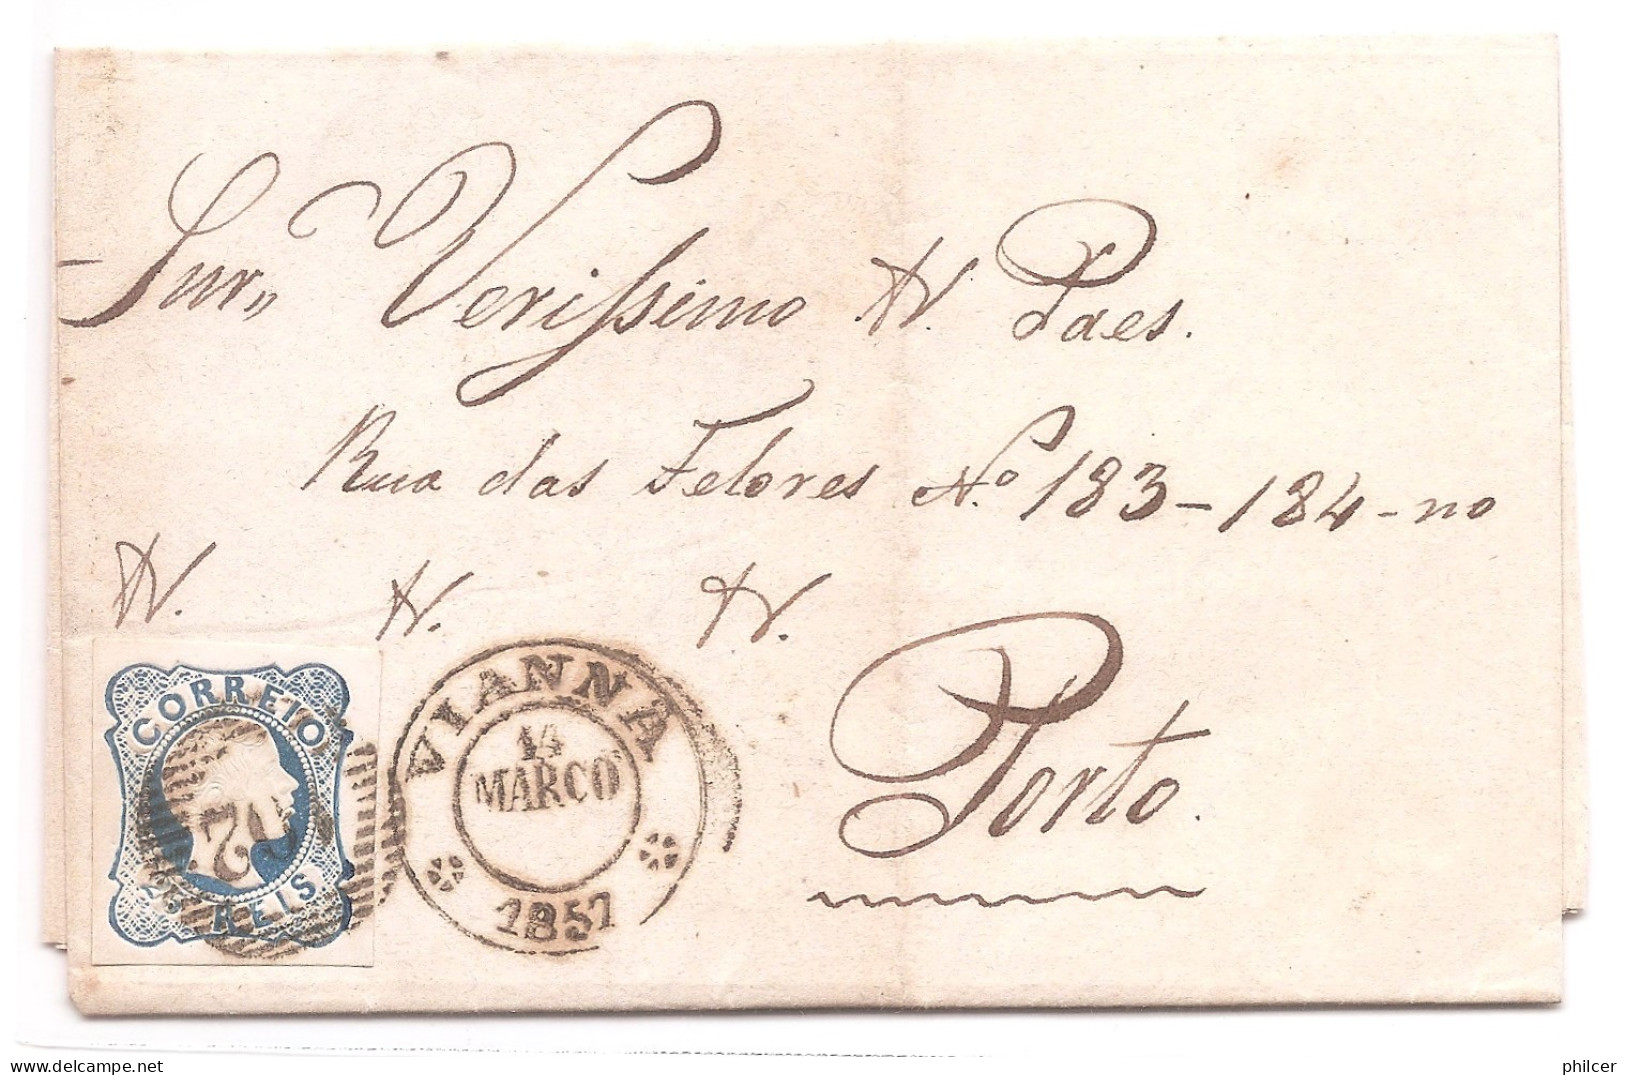 Snr,, Verissimo N. Paes.
Rua das Felores Nº 183-184-no
N. N. N.
Porto.
CORREIO
25 REIS
52
VIANNA
14
MARCO
1857
philcer